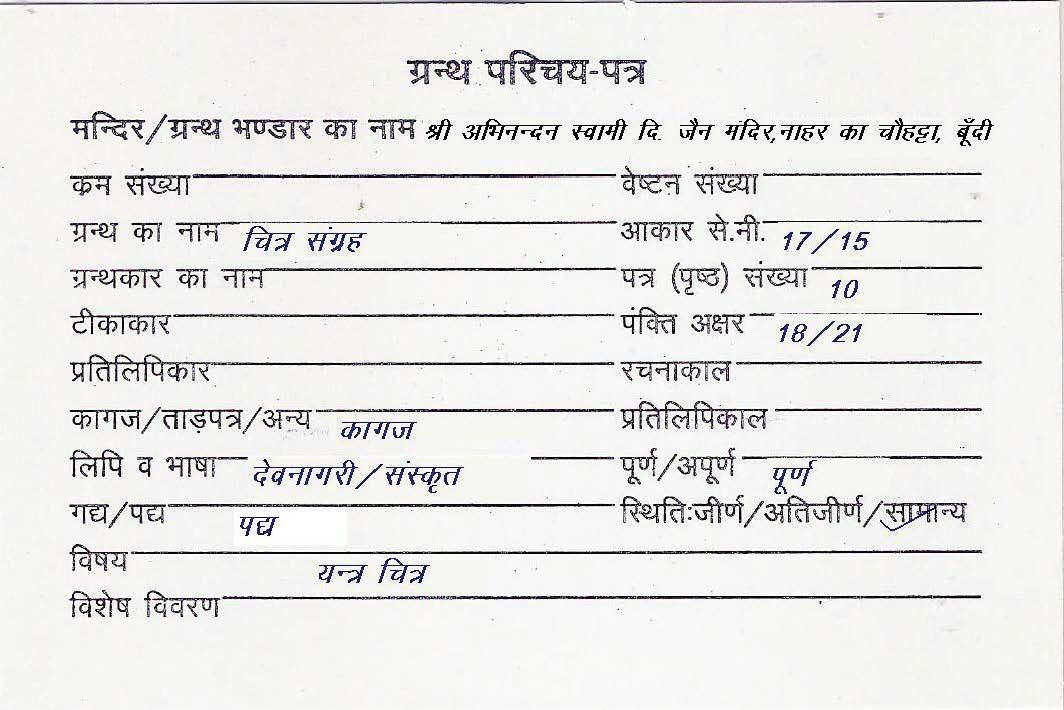 ग्रन्थ परिचय-पत्र
मन्दिर/ग्रन्थ भण्डार का नाम श्री अभिनन्दन स्वामी दि. जैन मंदिर,नाहर का चौहट्टा, बूँदी
क्रम संख्या वेष्टन संख्या
ग्रन्थ का नाम चित्र संग्रह आकार से.नी. 17/15
ग्रन्थकार का नाम पत्र (पृष्ठ) संख्या 10
टीकाकार पंक्ति अक्षर 18/21
प्रतिलिपिकार रचनाकाल
कागज/ताड़पत्र/अन्य कागज प्रतिलिपिकाल
लिपि व भाषा देवनागरी/संस्कृत पूर्ण/अपूर्ण पूर्ण
गद्य/पद्य पद्य स्थितिःजीर्ण/अतिजीर्ण/सामान्य
विषय यन्त्र चित्र
विशेष विवरण